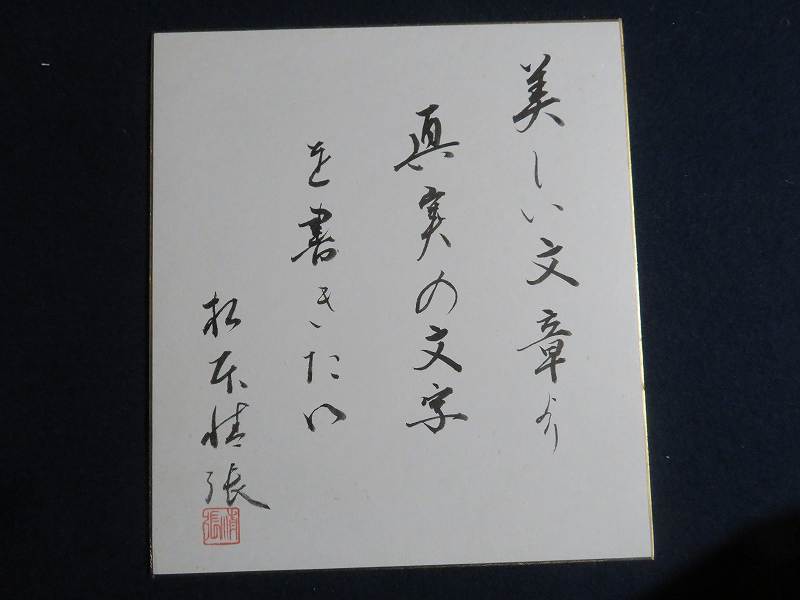 美しい文章より
真実の文字
を書きたい
松本清張
清張